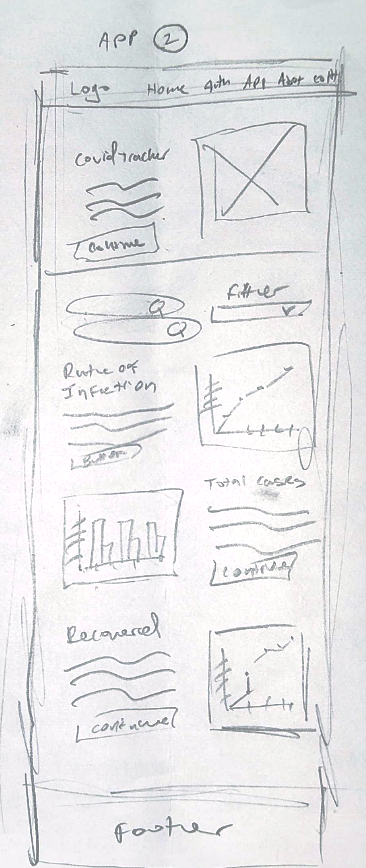 APP 2
Logo Home Auth App Abot
Covid tracker
Continue
Q
Q
Filtter
Rate of
Infection
Button
Total cases
Continue
Recovered
Continue
Footer